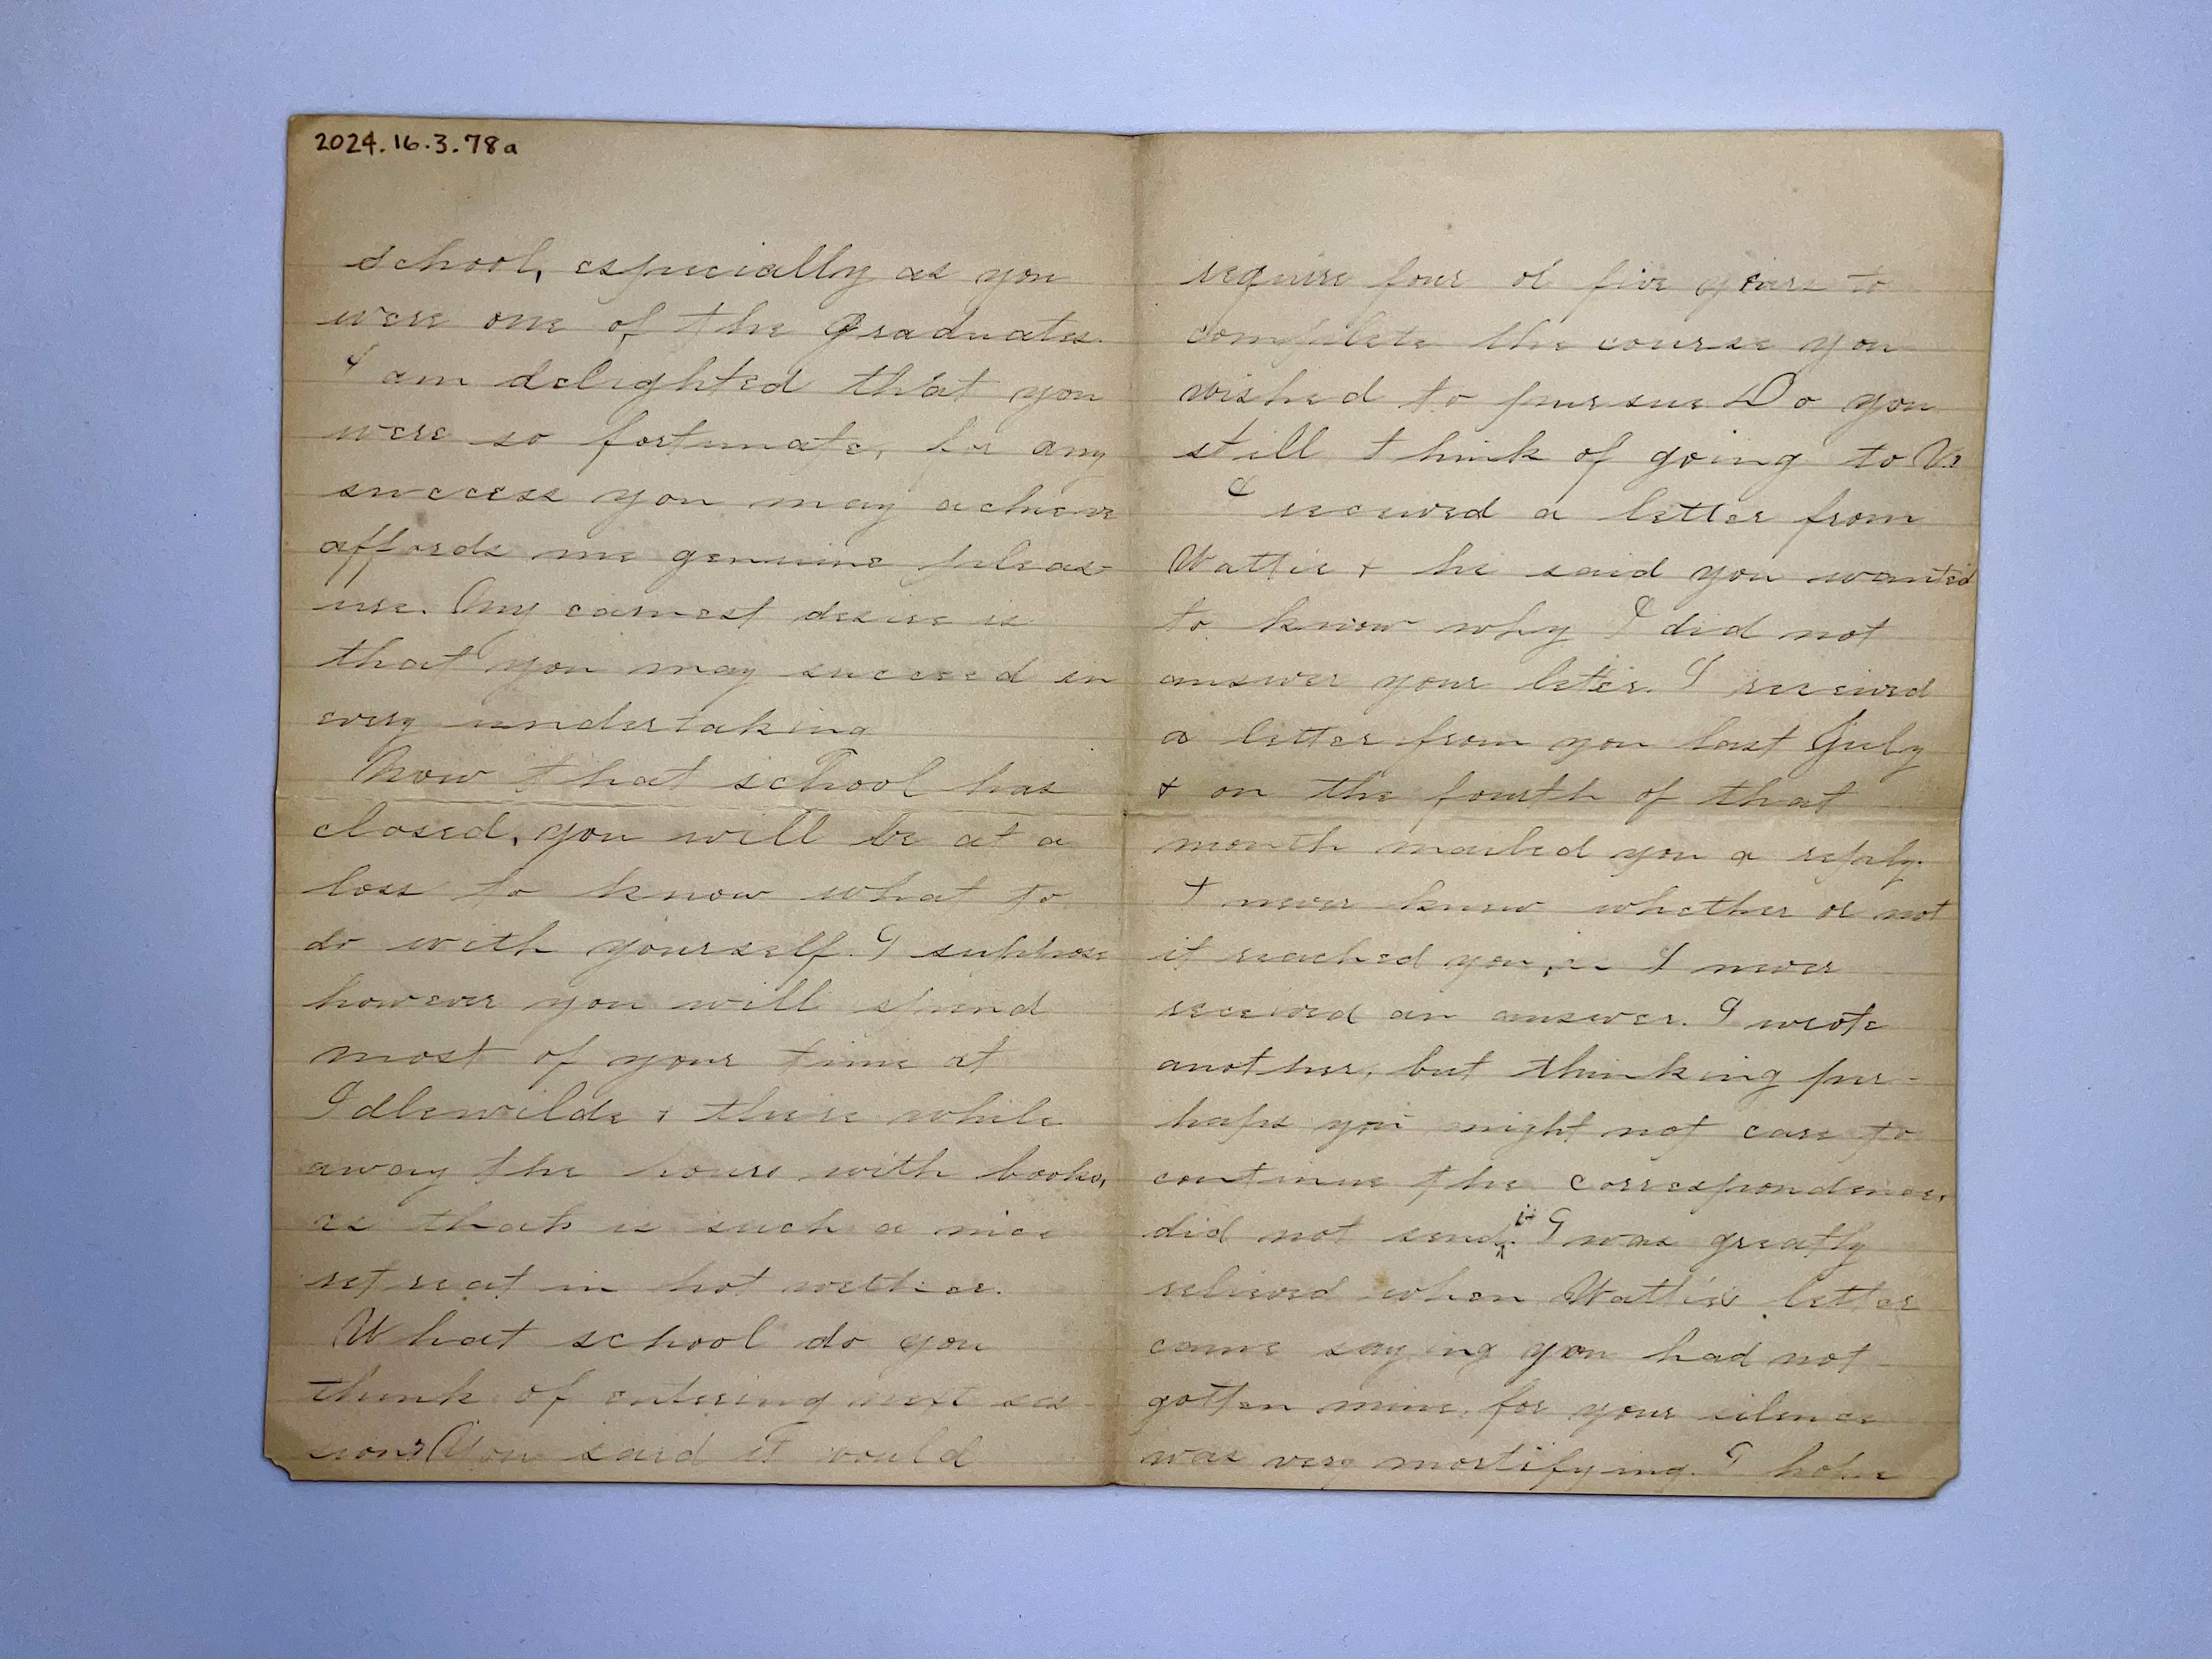 2024.16.3.78a
school, especially as you
were one of the graduates.
I am delighted that you
were so fortunate, for any
success you may achieve
affords me genuine pleas-
ure. My earnest desire is
that you may succeed in
every undertaking
Now that school has
closed, you will be at a
loss to know what to
do with yourself. I suppose
however you will spend
most of your time at
Idlewilde & there while
away the hours with books,
as that is such a nice
retreat in hot weather.
What school do you
think of entering next ses-
sion? You said it would
require four or five years to
complete the course you
wished to pursue Do you
still think of going to Va
I received a letter from
Wattie & he said you wanted
to know why I did not
answer your letter. I received
a letter from you last July
& on the fourth of that
month mailed you a reply.
I never knew whether or not
it reached you, as I never
received an answer. I wrote
another, but thinking per-
haps you might not care to
continue the correspondence,
did not send it. I was greatly
relieved when Wattie's letter
came saying you had not
gotten mine, for your silence
was very mortifying. I hope